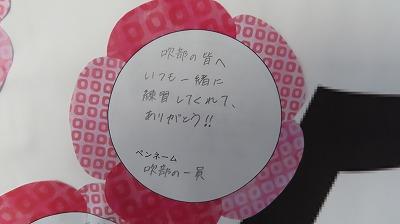 吹部の皆へ
いつも一緒に
練習してくれて、
ありがとう!!
ペンネーム
吹部の一員